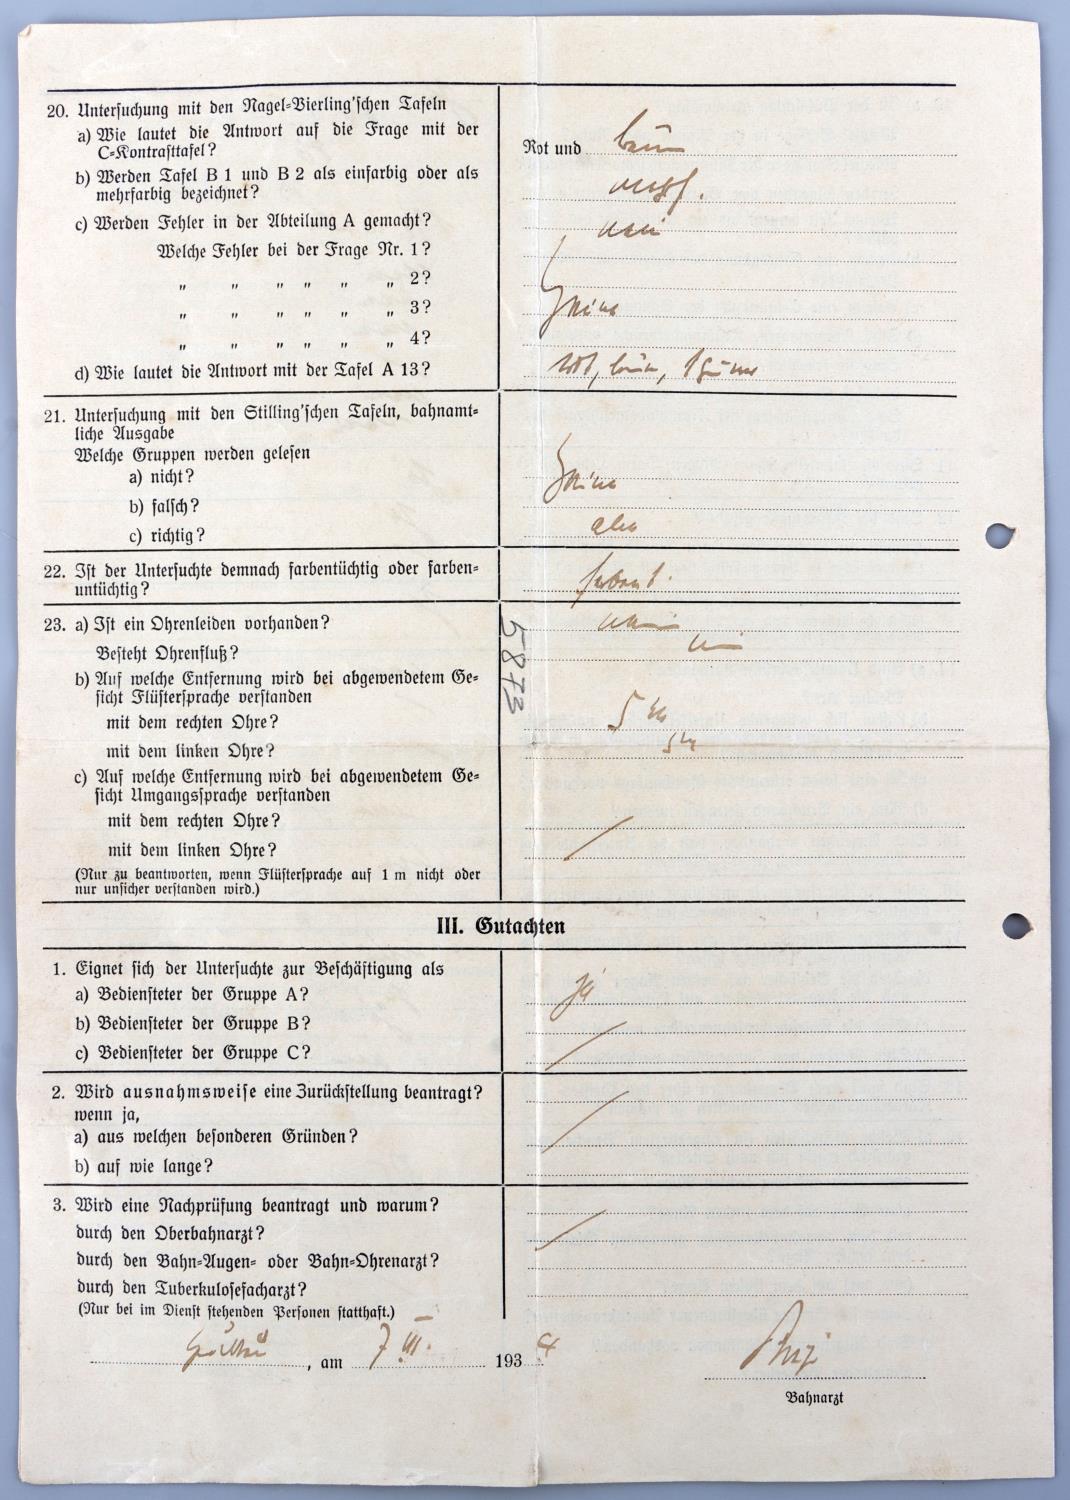 20. Untersuchung mit den Nagel=Vierling'schen Tafeln
a) Wie lautet die Antwort auf die Frage mit der
C=Kontrasttafel?
Rot und
b) Werden Tafel B 1 und B 2 als einfarbig oder als
mehrfarbig bezeichnet?
c) Werden Fehler in der Abteilung A gemacht?
nein
Welche Fehler bei der Frage Nr. 1?
" " " " " " 2?
" " " " " " 3?
keine
" " " " " " 4?
d) Wie lautet die Antwort mit der Tafel A 13?
rot,
21. Untersuchung mit den Stilling'schen Tafeln, bahnamt=
liche Ausgabe
Welche Gruppen werden gelesen
a) nicht?
keine
b) falsch?
c) richtig?
alle
22. Ist der Untersuchte demnach farbentüchtig oder farben=
untüchtig?
farbent.
23. a) Ist ein Ohrenleiden vorhanden?
nein
Besteht Ohrenfluß?
5873
b) Auf welche Entfernung wird bei abgewendetem Ge=
sicht Flüstersprache verstanden
mit dem rechten Ohre?
5 m
mit dem linken Ohre?
5 m
c) Auf welche Entfernung wird bei abgewendetem Ge=
sicht Umgangssprache verstanden
mit dem rechten Ohre?
mit dem linken Ohre?
(Nur zu beantworten, wenn Flüstersprache auf 1 m nicht oder
nur unsicher verstanden wird.)
III. Gutachten
1. Eignet sich der Untersuchte zur Beschäftigung als
a) Bediensteter der Gruppe A?
ja
b) Bediensteter der Gruppe B?
c) Bediensteter der Gruppe C?
2. Wird ausnahmsweise eine Zurückstellung beantragt?
wenn ja,
a) aus welchen besonderen Gründen?
b) auf wie lange?
3. Wird eine Nachprüfung beantragt und warum?
durch den Oberbahnarzt?
durch den Bahn=Augen= oder Bahn=Ohrenarzt?
durch den Tuberkulosefacharzt?
(Nur bei im Dienst stehenden Personen statthaft.)
, am 7 III. 1934
Bahnarzt